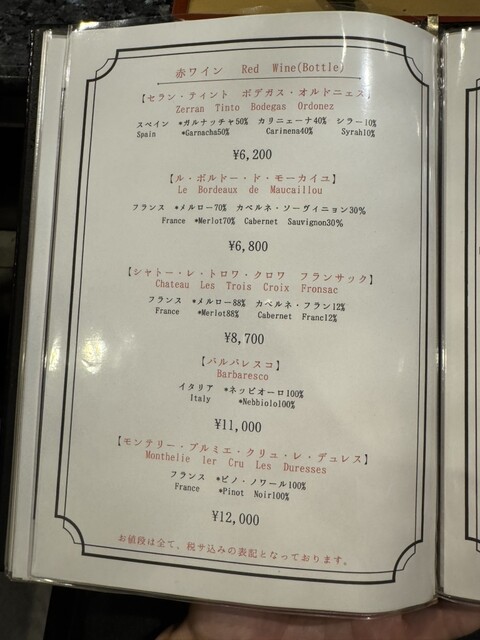 赤ワイン Red Wine(Bottle)
【セラン・ティント ボデガス・オルドニェス】
Zerran Tinto Bodegas Ordonez
スペイン *ガルナッチャ50% カリニェーナ40% シラー10%
Spain *Garnacha50% Carinena40% Syrah10%
¥6,200
【ル・ボルドー・ド・モーカイユ】
Le Bordeaux de Maucaillou
フランス *メルロー70% カベルネ・ソーヴィニョン30%
France *Merlot70% Cabernet Sauvignon30%
¥6,800
【シャトー・レ・トロワ・クロワ フランサック】
Chateau Les Trois Croix Fronsac
フランス *メルロー88% カベルネ・フラン12%
France *Merlot88% Cabernet Franc12%
¥8,700
【バルバレスコ】
Barbaresco
イタリア *ネッビオーロ100%
Italy *Nebbiolo100%
¥11,000
【モンテリー・プルミエ・クリュ・レ・デュレス】
Monthelie 1er Cru Les Duresses
フランス *ピノ・ノワール100%
France *Pinot Noir100%
¥12,000
お値段は全て、税サ込みの表記となっております。